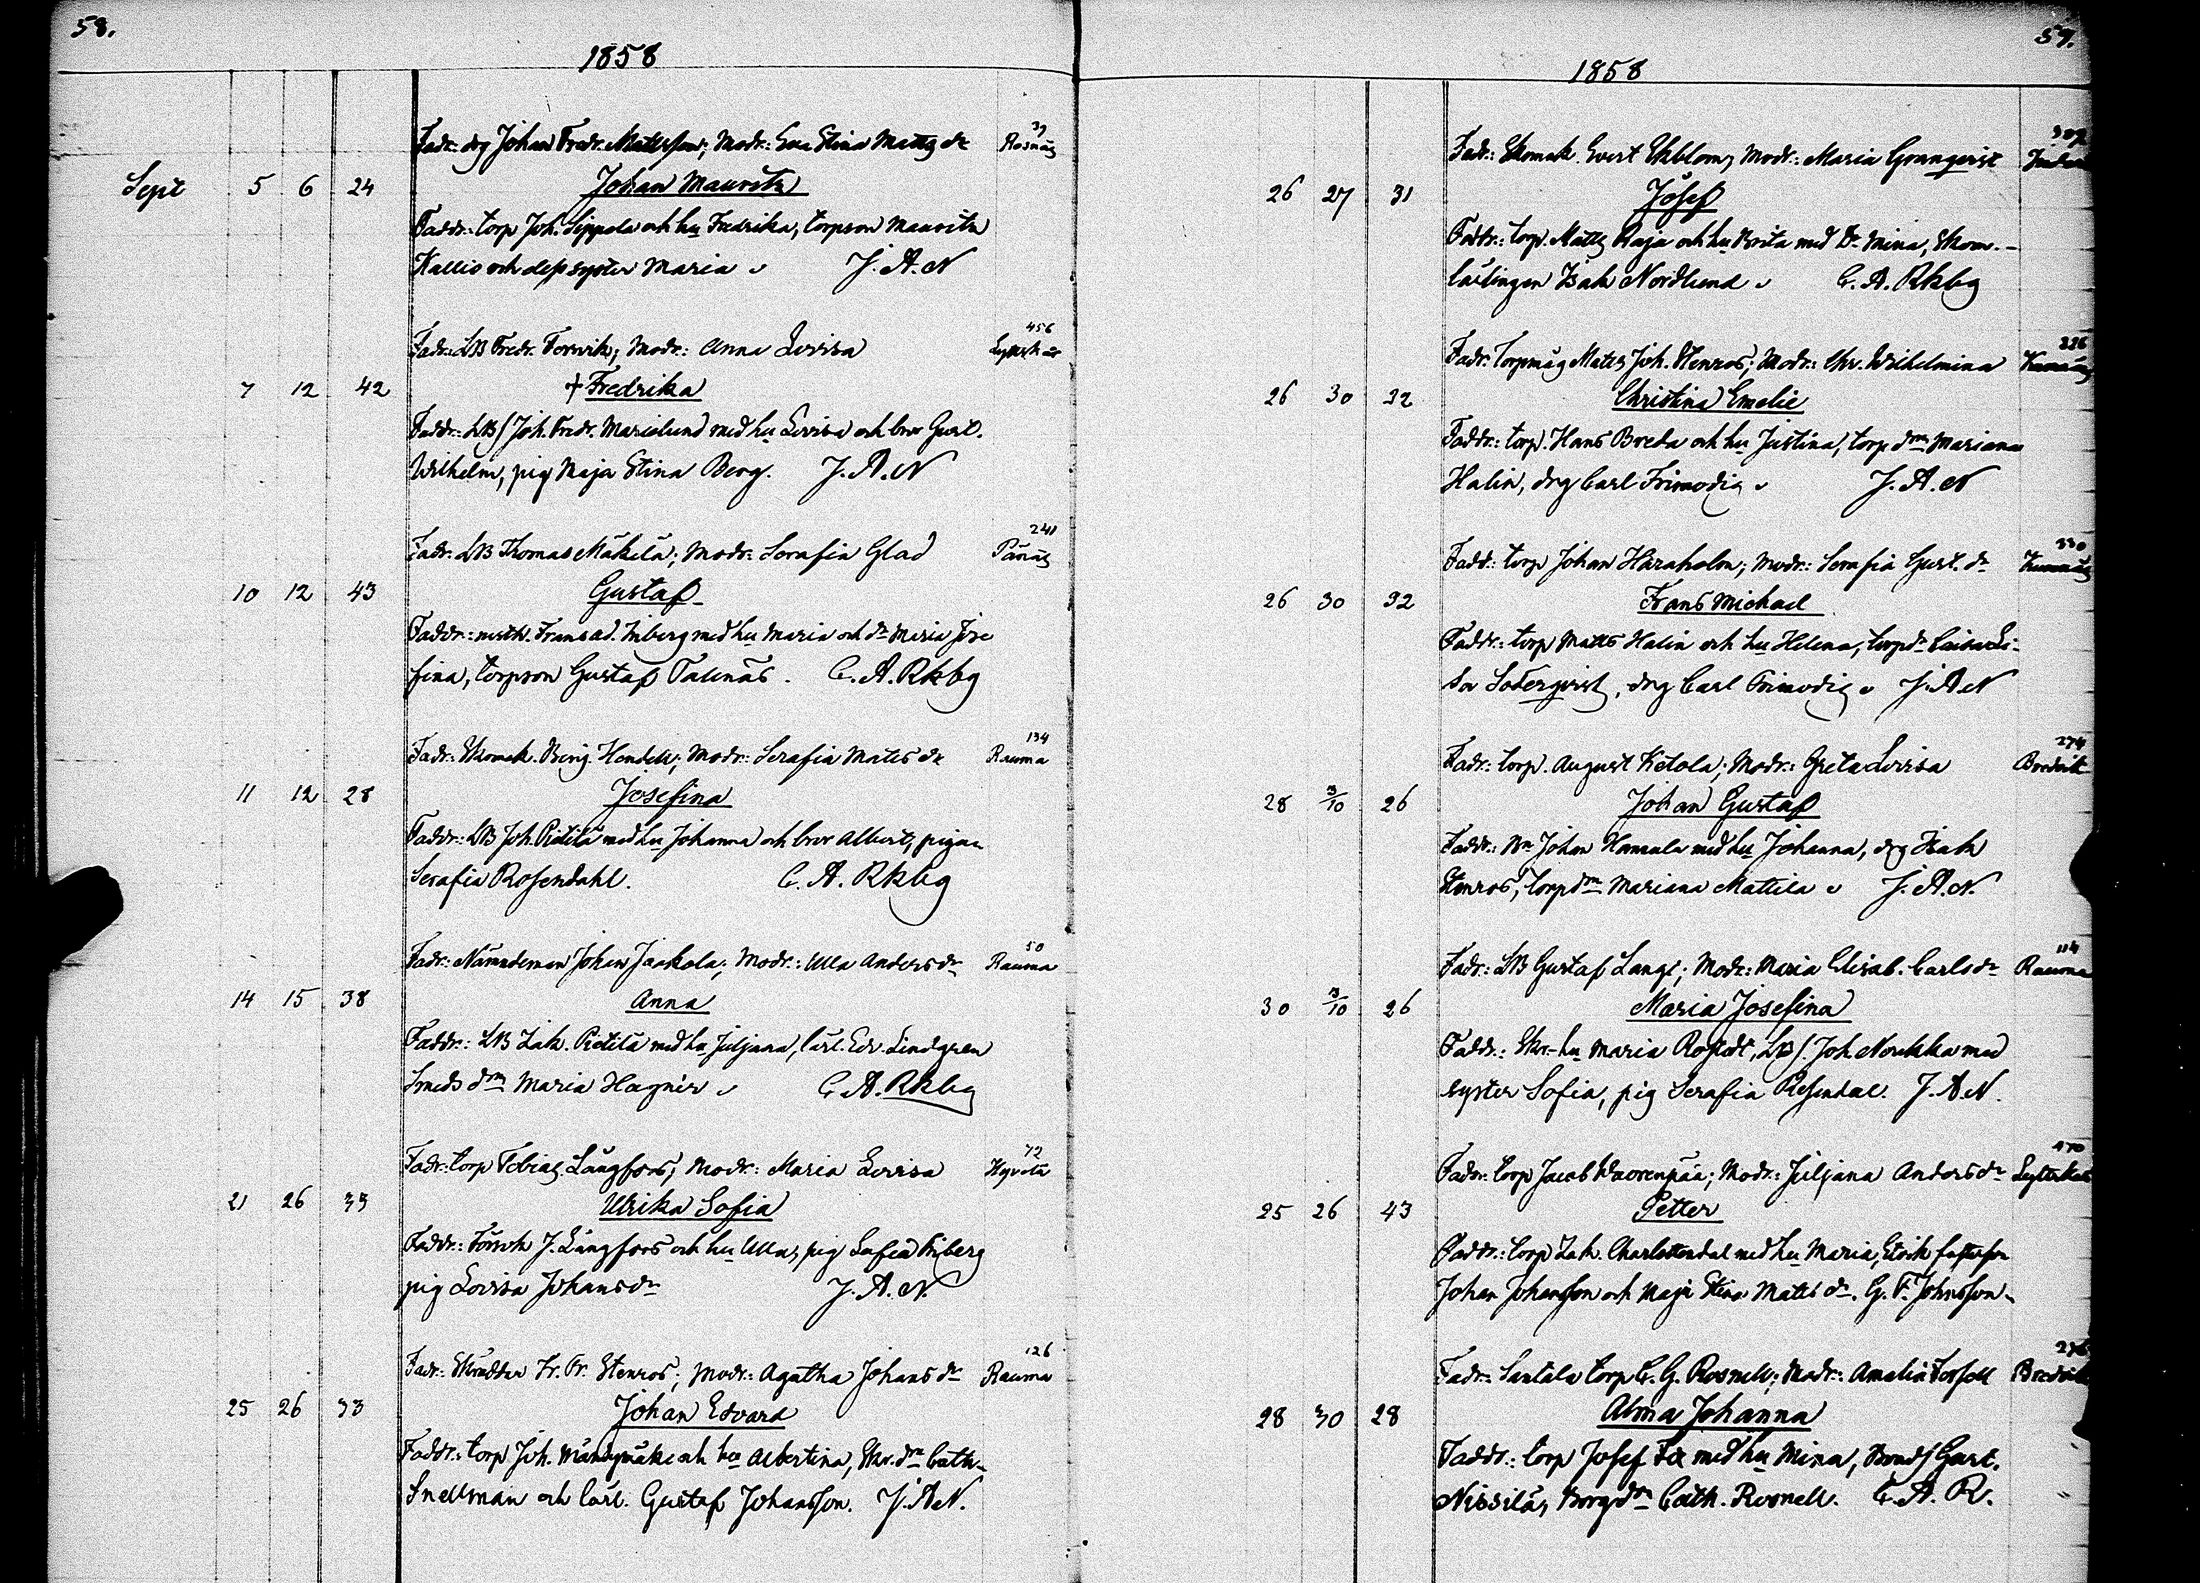 58.
1858
Fadr: drg Johan Fredr. Mattsson; Modr: Eva Stina Matts dr 39 Rosnäs
Sept 5 6 24 Johan Mauritz
Faddr: torp Joh. Seppola och hu Fredrika, torpson Mauritz
Kallio och dess syster Maria J. A. N
Fadr: LB Fredr. Forsvik; Modr: Anna Lovisa 456
7 12 42 † Fredrika
Faddr: LBs Joh. Fredr. Marielund med hu Lovisa och bror Gust.
Wilhelm, pig Maja Stina Berg. J. A. N
Fadr: LB Thomas Mäkilä; Modr: Serafia Glad 241 Pånäs
10 12 43 Gustaf
Faddr: Frans ad. Friberg med hu Maria och dr Maria Jose
fina, torpson Gustaf Talinäs. C. A. Rkbg
Fadr: Skomak. Benj. Hendell; Modr: Serafia Matts dr 134 Rauma
11 12 28 Josefina
Faddr: LB Joh. Pietilä med hu Johanna och bror Albert, pigan
Serafia Rosendahl. C. A. Rkbg
Fadr: Nämndeman Johan Jaakola; Modr: Ulla Anders dr 50 Rauma
14 15 38 Anna
Faddr: LB Isak. Pietilä med hu Juljana, lärl. Edv. Lindgren
Smeds drn Maria Hagnér C. A. Rkbg
Fadr: torp Tobias Långfors; Modr: Maria Lovisa 72
21 26 35 Ulrika Sofia
Faddr: J. Långfors och hu Ulla, pig Sofia Friberg
pig Lovisa Johans dr J. A. N.
Fadr: Skräddar Fr. Fr. Stenros; Modr: Agatha Johans dr 126 Rauma
25 26 33 Johan Edvard
Faddr: torp Joh. Mäntymäki och hu Albertina, Skr. drn Cath.
Snellman och lärl. Gustaf Johansson. J. A. N.
57.
1858
Fadr: Skomak. Evert Ekblom; Modr: Maria Granqvist
26 27 31 Josef
Faddr: torp. Matts Raja och hu Brita med dr Mina, Skom.-
lärlingen Isak Nordlund C. A. Rkbg
Fadr: Torpmåg Matts Joh. Stenros; Modr: Chr. Wilhelmina Kumnäs
26 30 32 Christina Emelie
Faddr: torp. Hans Breda och hu Justina, torp drn Mariana
Halin, drg Carl Frimodig J. A. N
Fadr: torp Johan Haraholm; Modr: Serafia Gust. dr 330 Kumnäs
26 30 32 Frans Michael
Faddr: torp Matts Halin och hu Helena, torp dr Caisa Li-
sa Söderqvist, drg Carl Frimodig J. A. N
Fadr: torp. August Ketola; Modr: Greta Lovisa 274 Bredvik
28 3/10 26 Johan Gustaf
Faddr: Bn Johan Hannula med hu Johanna, drg Isak
Stenros, torp drn Mariana Mattila J. A. N.
Fadr: LB Gustaf Lange; Modr: Maria Elisab. Carls dr 114 Rauma
30 3/10 26 Maria Josefina
Faddr: Skr. hu Maria Rostedt, LBs Joh. Noukka med
syster Sofia, pig Serafia Rosendal. J. A. N.
Fadr: torp Jacob Waorenpää; Modr: Juljana Anders dr 470
25 26 43 Petter
Faddr: torp Isak. Charlottendal med hu Maria,
Johan Johansson och Maja Stina Matts dr. G. F. Johnsson.
Fadr: Santala torp C. G. Rosnell; Modr: Amalia Forsell 276 Bredvik
28 30 28 Alma Johanna
Faddr: torp Josef Fix med hu Mina, Bonds Gust.
Nissilä, Borg drn Cath. Rosnell. C. A. R.